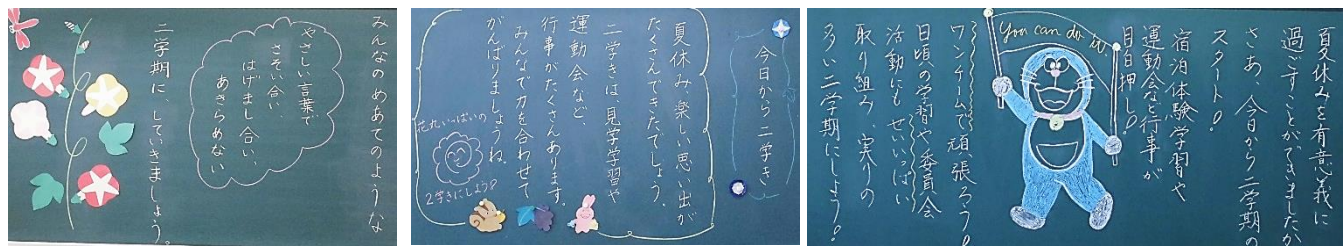 みんなのめあてのような
やさしい言葉で
さそい合い、
はげまし合い、
あきらめない
二学期に、していきましょう。
今日から二学き
夏休み、楽しい思い出が
たくさんできたでしょう。
二学きは、見学学習や
運動会など、
行事がたくさんあります。
みんなで力を合わせて
がんばりましょうね。
花丸いっぱいの
2学きにしよう♪
夏休みを有意義に
過ごすことができましたか
さあ、今日から二学期の
スタート!
宿泊体験学習や
運動会など行事が
目白押し!
You can do it
ワンチームで頑張ろう!
日頃の学習や委員会
活動にも せいいっぱい
取り組み、実りの
多い二学期にしよう!